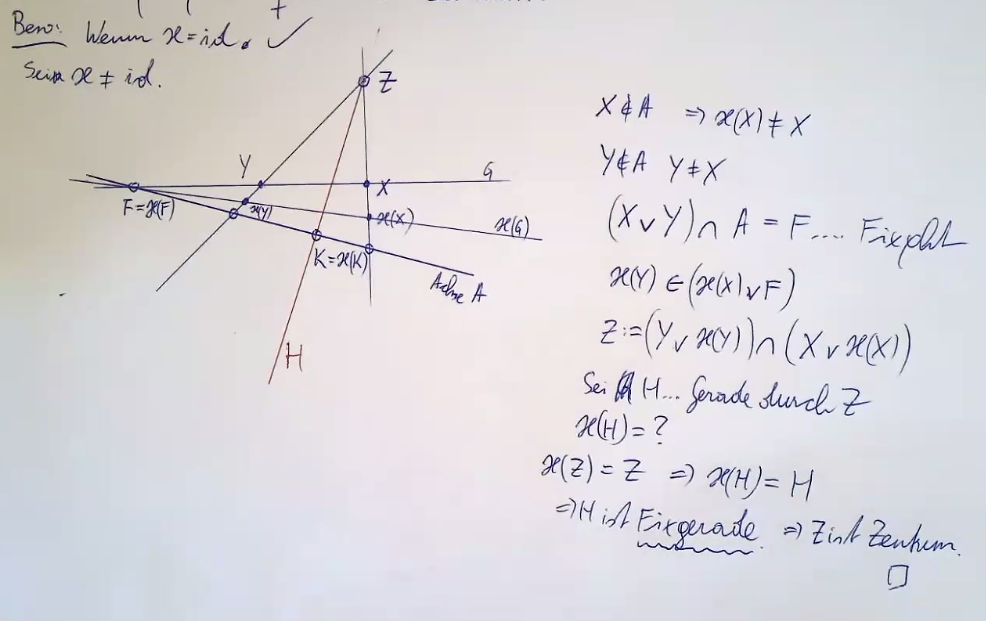 Bew: Wenn ϰ = id. ✓
Sei ϰ ≠ id.
Z
Y
X
G
F = ϰ(F)
ϰ(Y)
ϰ(X)
ϰ(G)
K = ϰ(K)
Achse A
H
X ∉ A ⇒ ϰ(X) ≠ X
Y ∉ A Y ≠ X
(X ∨ Y) ∩ A = F.... Fixpkt
ϰ(Y) ∈ (ϰ(X) ∨ F)
Z := (Y ∨ ϰ(Y)) ∩ (X ∨ ϰ(X))
Sei H... Gerade durch Z
ϰ(H) = ?
ϰ(Z) = Z ⇒ ϰ(H) = H
⇒ H ist Fixgerade. ⇒ Z ist Zentrum.
□